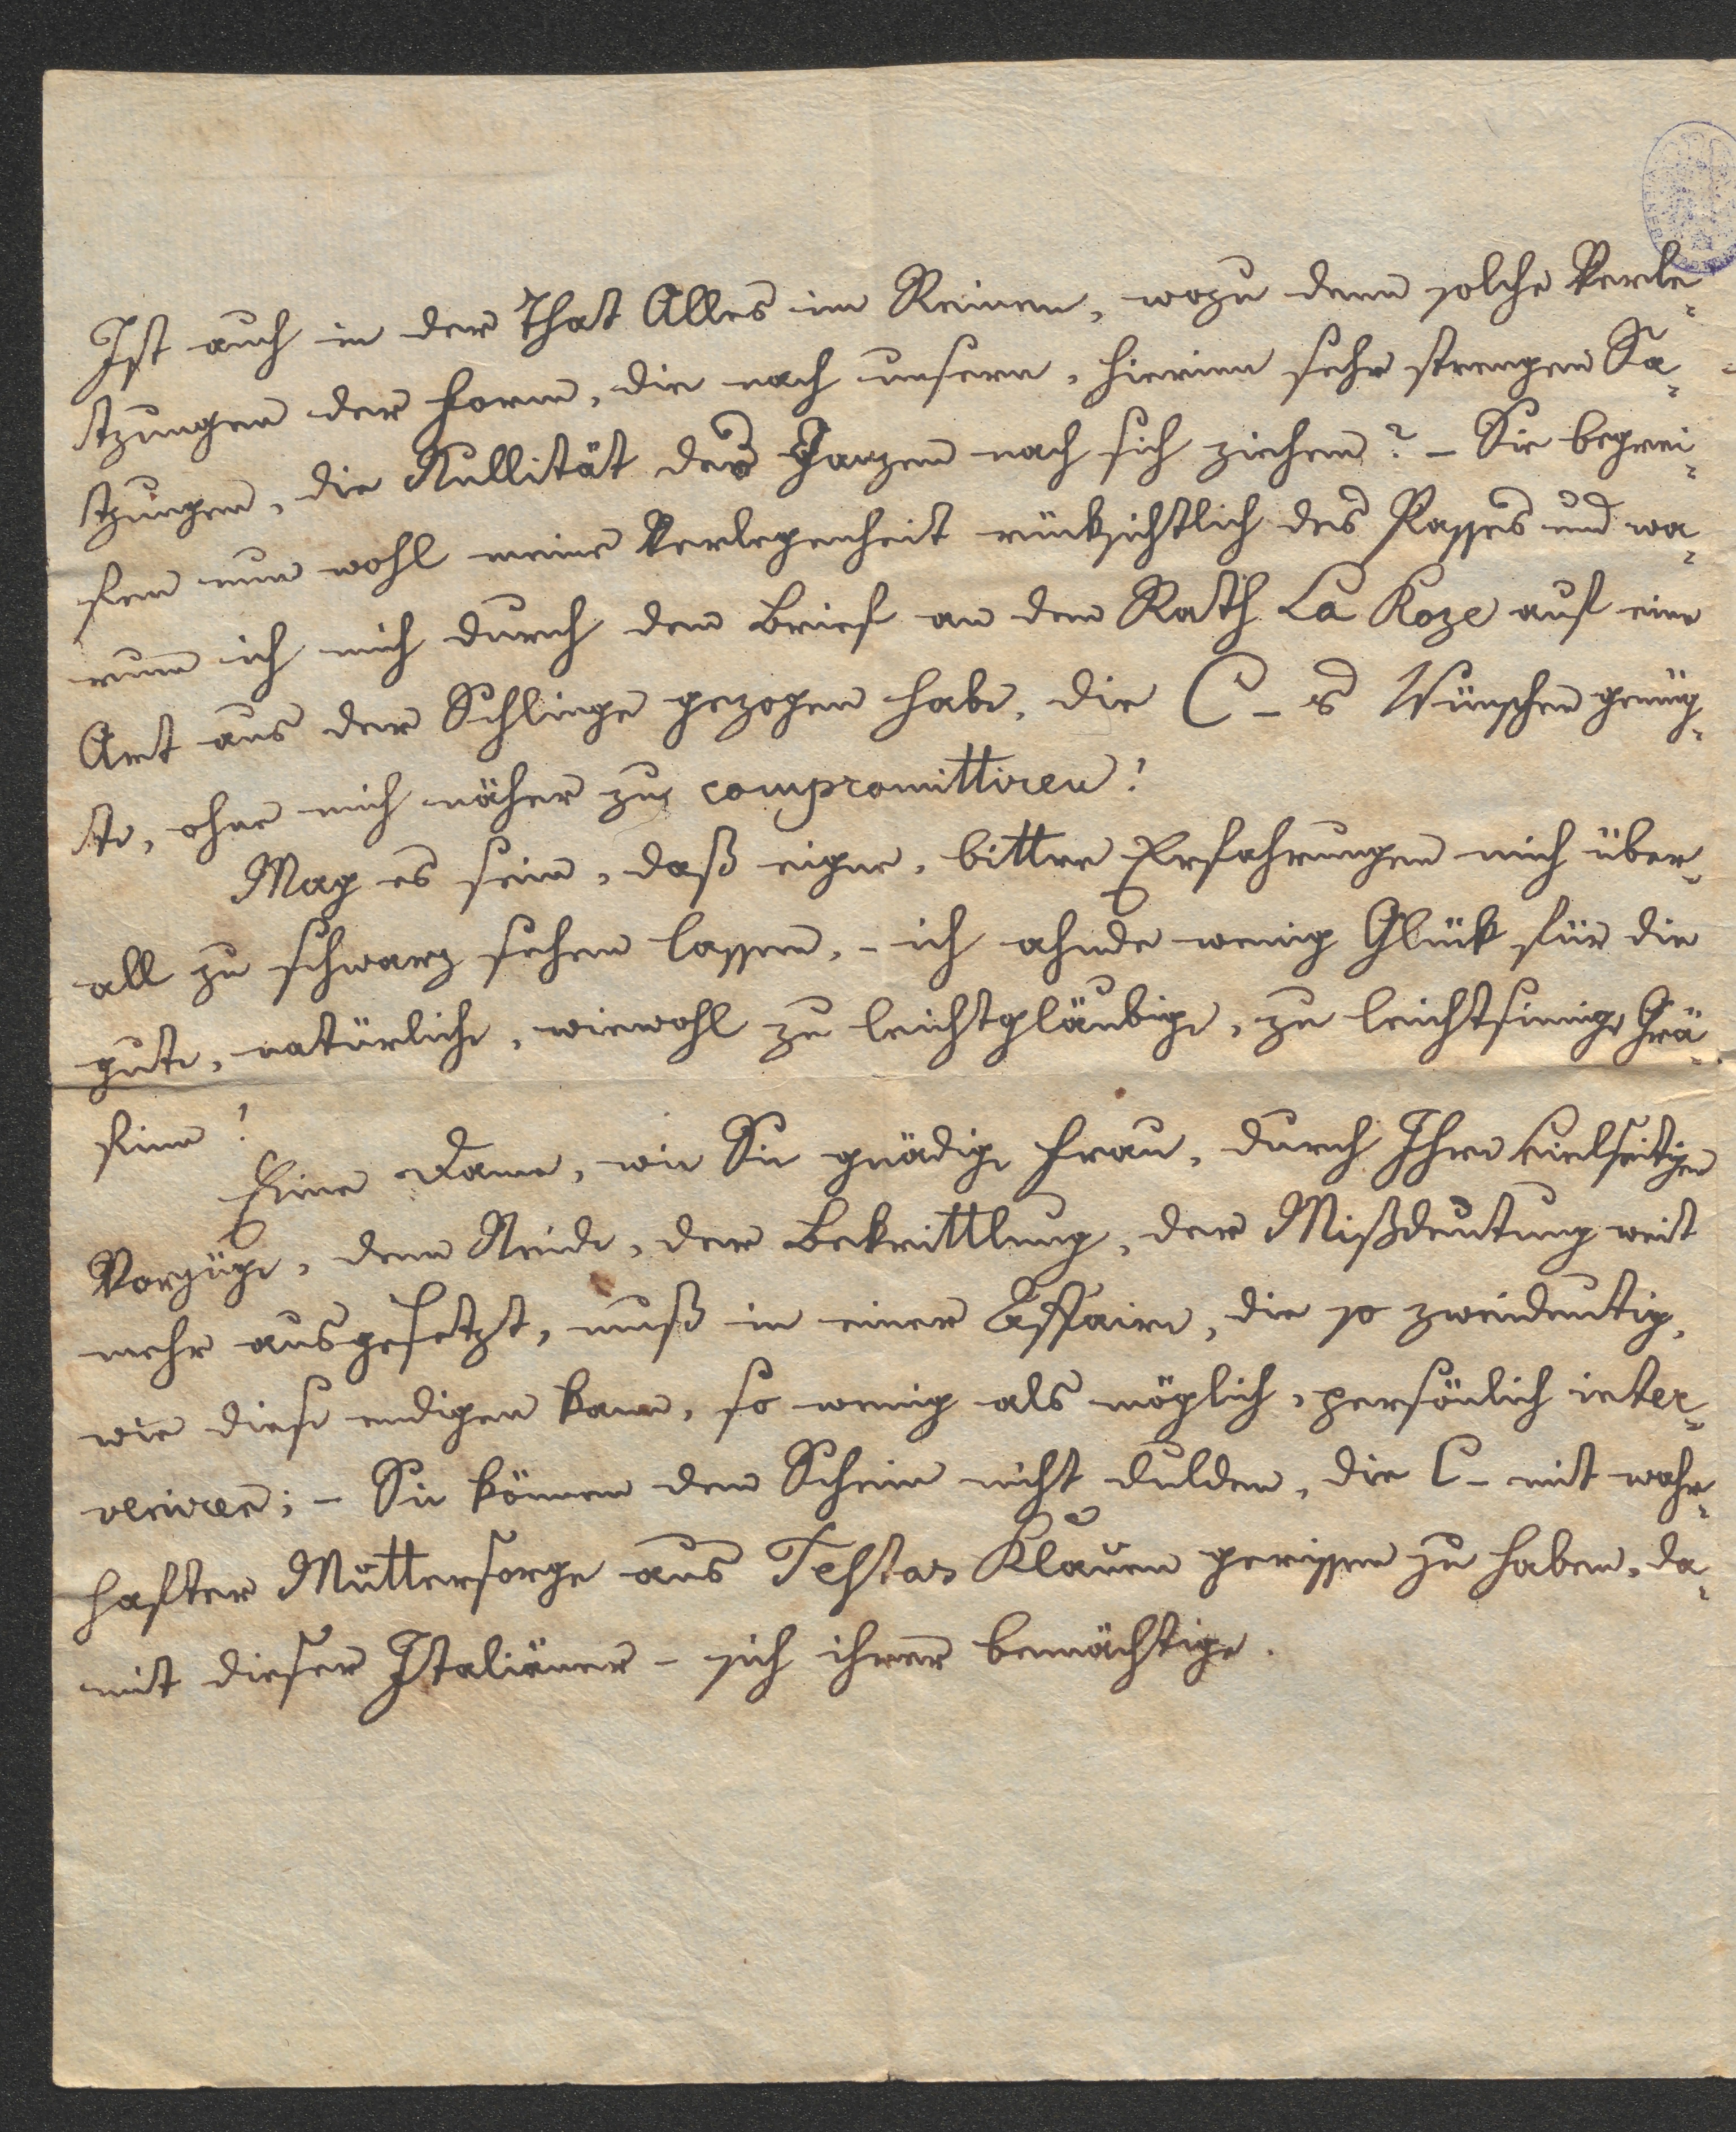 Ist auch in der That Alles im Reinen, wozu denn solche Verle¬
tzungen der Form, die nach unsern, hierinn sehr strengen Sa¬
tzungen, die Nullität des Ganzen nach sich ziehen? – Sie begrei¬
fen nun wohl meine Verlegenheit rücksichtlich des Passes und wa¬
rum ich mich durch den Brief an den Rath La Roze auf eine
Art aus der Schlinge gezogen habe, die C – s Wünschen genüg¬
te, ohne mich näher zu compromittiren!
Mag es sein, daß eigne, bittre Erfahrungen mich über¬
all zu schwarz sehen lassen, – ich ahnde wenig Glück für die
gute, natürliche, wiewohl zu leichtgläubige, zu leichtsinnige Grä¬
finn!
Eine Dame, wie Sie gnädige Frau, durch Ihre vielseitigen
Vorzüge, dem Neide, der Bekrittlung, der Mißdeutung weit
mehr ausgesetzt, muß in einer Affaire, die so zweideutig,
wie diese endigen kann, so wenig als möglich, persönlich inter¬
veniren; – Sie können den Schein nicht dulden, die C – mit wahr¬
hafter Muttersorge aus Testas Klauen gerissen zu haben, da¬
mit dieser Italiäner – sich ihrer bemächtige.